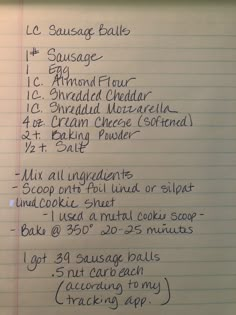 LC Sausage Balls
1# Sausage
1 Egg
1 C. Almond Flour
1C. Shredded Cheddar
1C Shredded Mozzarella
4oz Cream Cheese (softened)
2 t. Baking Powder
1/2 t. Salt
- Mix all ingredients
- Scoop onto foil lined or silpat
lined cookie sheet
- I used a metal cookie scoop -
- Bake @ 350° 20-25 minutes
I got 39 sausage balls
.5 net carb each
(according to my
tracking app.)